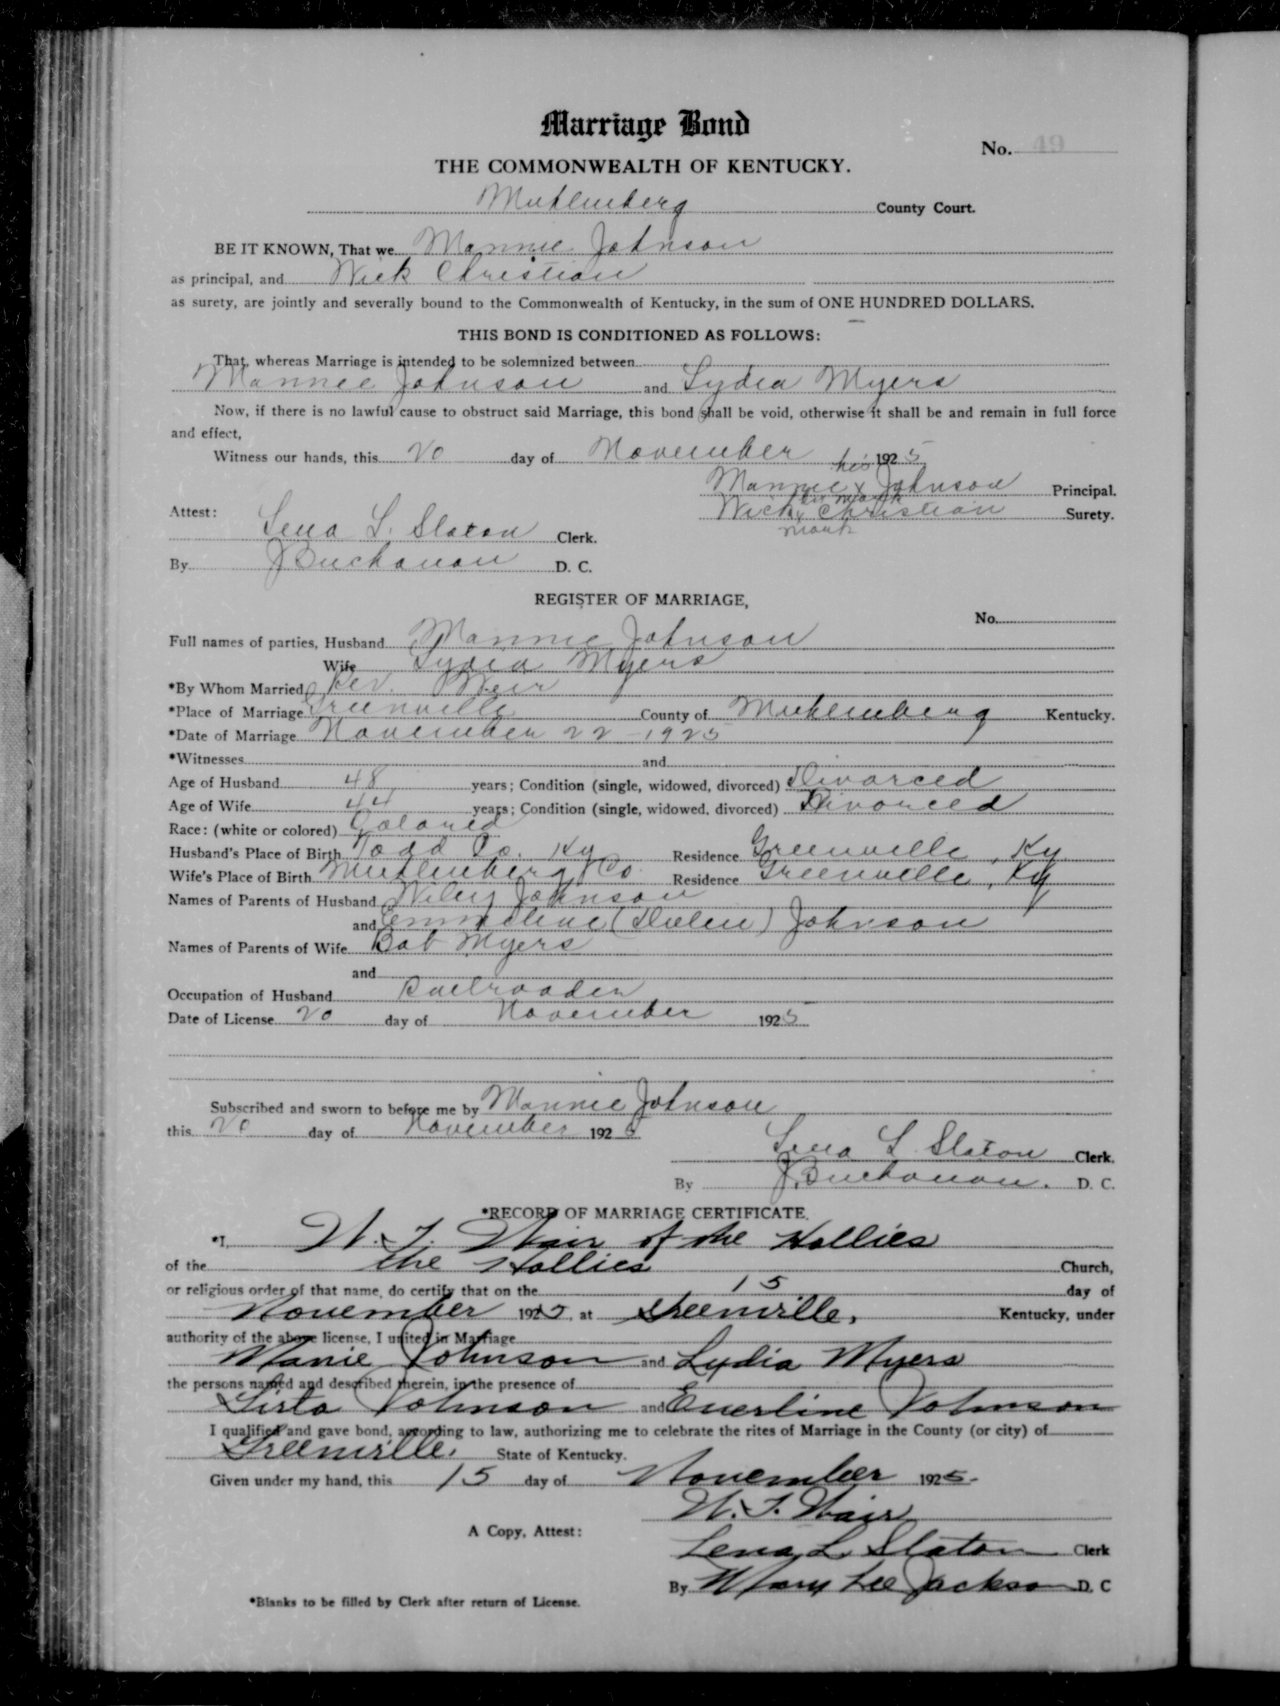 Marriage Bond
No. 49
THE COMMONWEALTH OF KENTUCKY.
Muhlenberg County Court.
BE IT KNOWN, That we Mannie Johnson
as principal, and Wick Christian
as surety, are jointly and severally bound to the Commonwealth of Kentucky, in the sum of ONE HUNDRED DOLLARS.
THIS BOND IS CONDITIONED AS FOLLOWS:
That, whereas Marriage is intended to be solemnized between
Mannie Johnson and Lydia Myers
Now, if there is no lawful cause to obstruct said Marriage, this bond shall be void, otherwise it shall be and remain in full force
and effect,
Witness our hands, this 20 day of November 1925
his
Mannie x Johnson Principal.
his mark
Attest: Wick x Christian Surety.
mark
Lena L. Slaton Clerk.
By J Buchanan D. C.
REGISTER OF MARRIAGE,
No.
Full names of parties, Husband Mannie Johnson
Wife Lydia Myers
*By Whom Married Rev. Weir
*Place of Marriage Greenville County of Muhlenberg Kentucky.
*Date of Marriage November 22 - 1925
*Witnesses and
Age of Husband 48 years; Condition (single, widowed, divorced) Divorced
Age of Wife 44 years; Condition (single, widowed, divorced) Divorced
Race: (white or colored) Colored
Husband's Place of Birth Todd Co. Ky Residence Greenville, Ky
Wife's Place of Birth Muhlenberg Co. Residence Greenville, Ky
Names of Parents of Husband Wiley Johnson
and Emmeline ( ) Johnson
Names of Parents of Wife Bob Myers
and
Occupation of Husband Railroader
Date of License 20 day of November 1925
Subscribed and sworn to before me by Mannie Johnson
this 20 day of November 1925
Lena L. Slaton Clerk.
By J. Buchanan. D. C.
*RECORD OF MARRIAGE CERTIFICATE.
*I, W. T. Wair of the Hollies
of the the Hollies Church,
or religious order of that name, do certify that on the 15 day of
November 1925, at Greenville, Kentucky, under
authority of the above license, I united in Marriage
Manie Johnson and Lydia Myers
the persons named and described therein, in the presence of
Johnson and Everline Johnson
I qualified and gave bond, according to law, authorizing me to celebrate the rites of Marriage in the County (or city) of
Greenville. State of Kentucky.
Given under my hand, this 15 day of November 1925.
W. T. Wair
A Copy, Attest:
Lena L. Slaton Clerk
By Mary Lee Jackson D. C
*Blanks to be filled by Clerk after return of License.